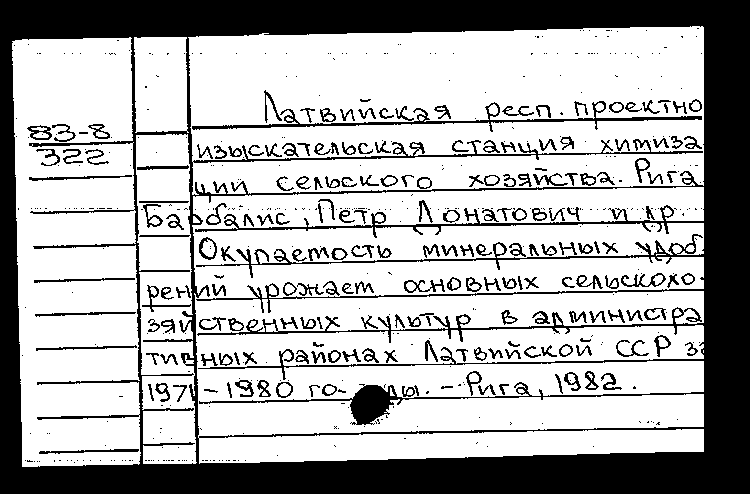 Латвийская респ. проектно
83-8
322
изыскательская станция химиза
ции сельского хозяйства. Рига
Барбалис, Петр Донатович и др.
Окупаемость минеральных удоб.
рений урожает основных сельскохо-
зяйственных культур в администра
тивных районах Латвийской ССР за
1971-1980 го- ды. - Рига, 1982.